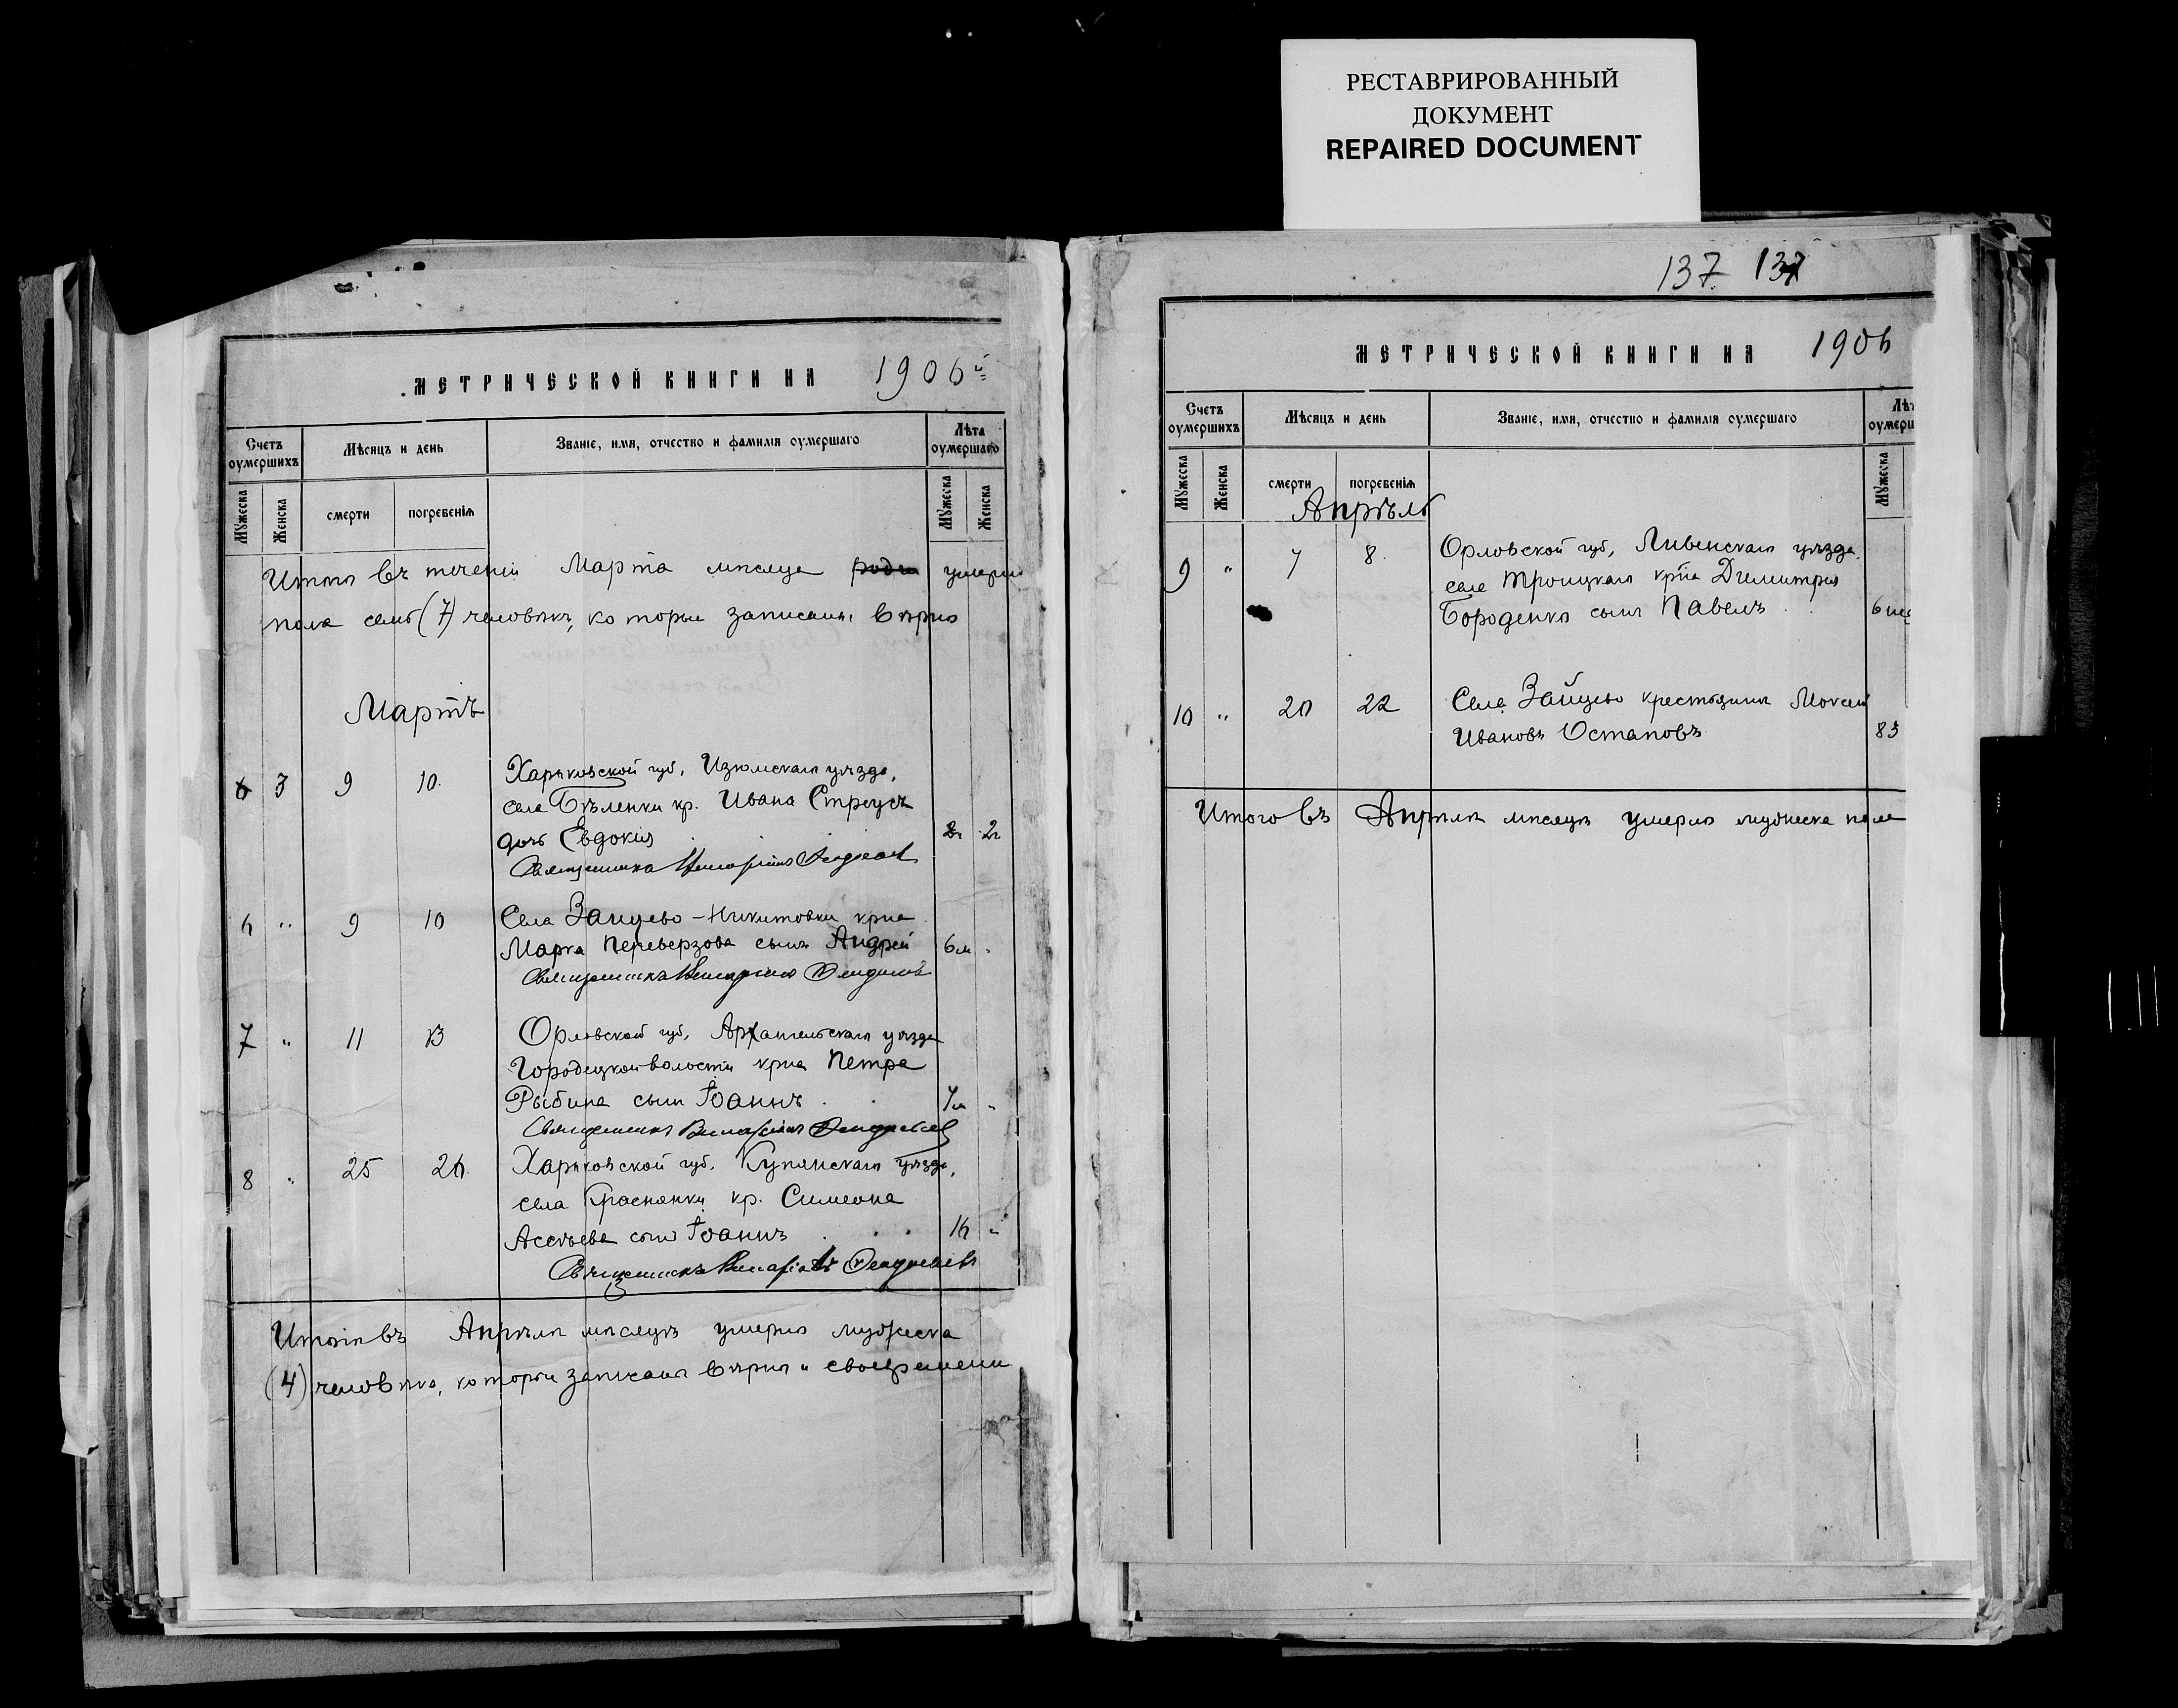 РЕСТАВРИРОВАННЫЙ
ДОКУМЕНТ
REPAIRED DOCUMENT
МЕТРИЧЕСКОЙ КНИГИ НА 1906й
Счетъ оумершихъ
Мѣсяцъ и день
Званіе, имя, отчество и фамилія оумершаго
Лѣта оумершаго
Мужеска Женска смерти погребенія Мужеска Женска
Итого въ теченіи Марта мѣсяца умерло
пола семь (7) человѣкъ, которые записаны вѣрно
Мартъ
3 9 10. Харьковской губ. Изюмскаго уѣзда,
села Бѣленки кр. Ивана Стреусъ
дочь Евдокія 2г
Священникъ
6 " 9 10 Села Зайцево-Никитовки кр–на
Марка Переверзова сынъ Андрей 6м
Священникъ
7 " 11 13 Орловской губ. Архангельскаго уѣзда
Городецкой волости кр–на Петра
Рыбина сынъ Іоаннъ
Священникъ
8 " 25 26. Харьковской губ. Купянскаго уѣзда,
села Краснянки кр. Симеона
сынъ Іоаннъ
Священникъ
Итого въ Апрѣлѣ мѣсяцѣ умерло мужеска
(4) человѣка, которые записаны вѣрно и своевременно
137. 137
МЕТРИЧЕСКОЙ КНИГИ НА 1906
Счетъ оумершихъ
Мѣсяцъ и день
Званіе, имя, отчество и фамилія оумершаго
Мужеска Женска смерти погребенія Мужеска
Апрѣль
9 " 7 8. Орловской губ, Ливенскаго уѣзда.
села Троицкаго кр–на Димитрія
Бороденко сынъ Павелъ 6 мес
10 " 20 22 Села Зайцево крестьянинъ Моисей
Ивановъ Остаповъ 83
Итого въ Апрѣлѣ мѣсяцѣ умерло мужеска пола